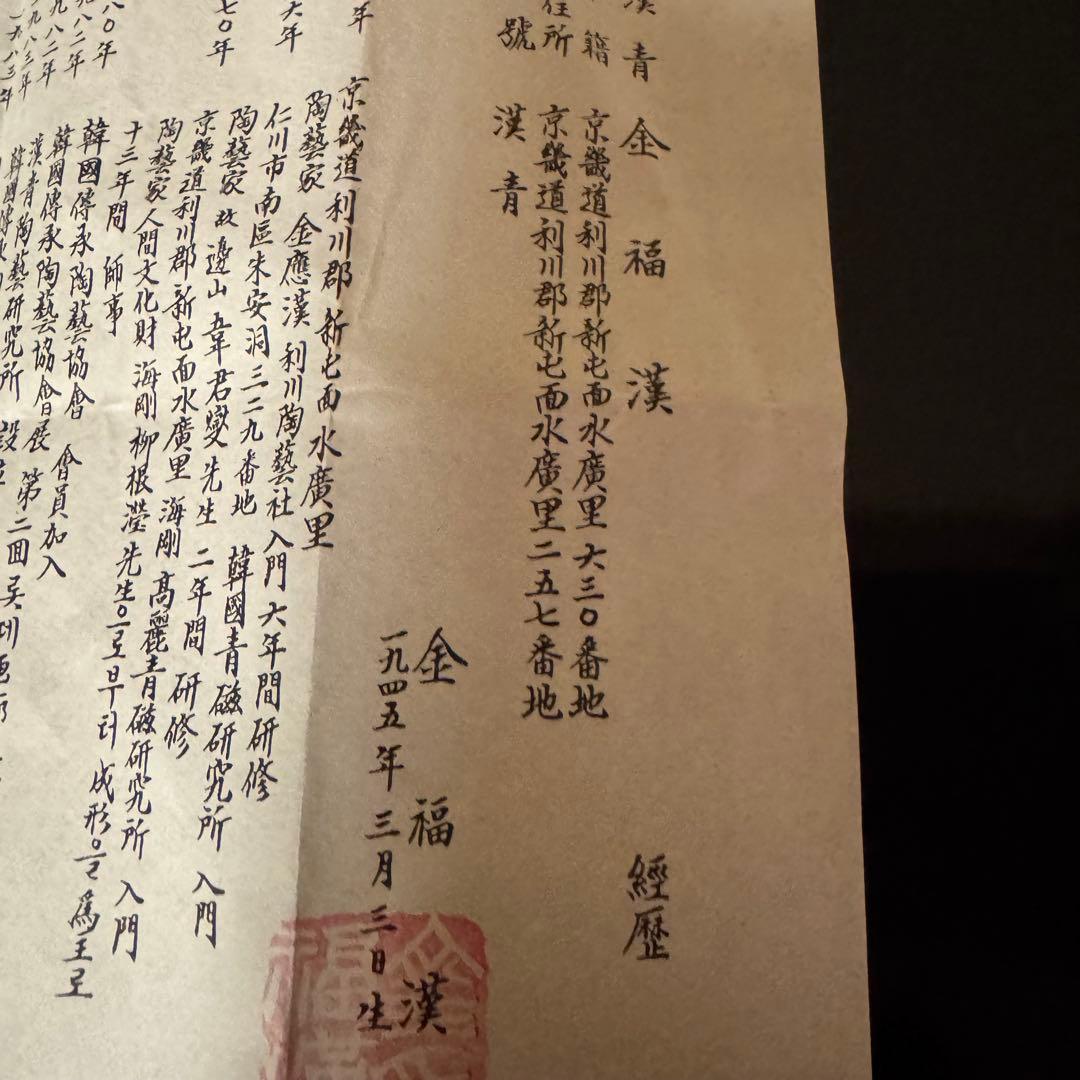 漢青 金福漢 經歷
籍 京畿道利川郡新屯面水廣里六三〇番地
住所 京畿道利川郡新屯面水廣里二五七番地
號 漢青
金福漢
一九四五年三月三日生
年 京畿道利川郡新屯面水廣里
六年 陶藝家 金應漢 利川陶藝社 入門 六年間 研修
仁川市南區朱安洞三二九番地 韓國青磁研究所 入門
七〇年 陶藝家 故 邊山 先生 二年間 研修
京畿道利川郡新屯面水廣里 海剛 高麗青磁研究所 入門
陶藝家人間文化財 海剛 柳根瀅 先生으로부터 成形을 爲主로
十三年間 師事
八〇年 韓國傳承陶藝協會 會員加入
九八二年 韓國傳承陶藝協會展 第二回
九八二年 漢青陶藝研究所 設立
九八三年